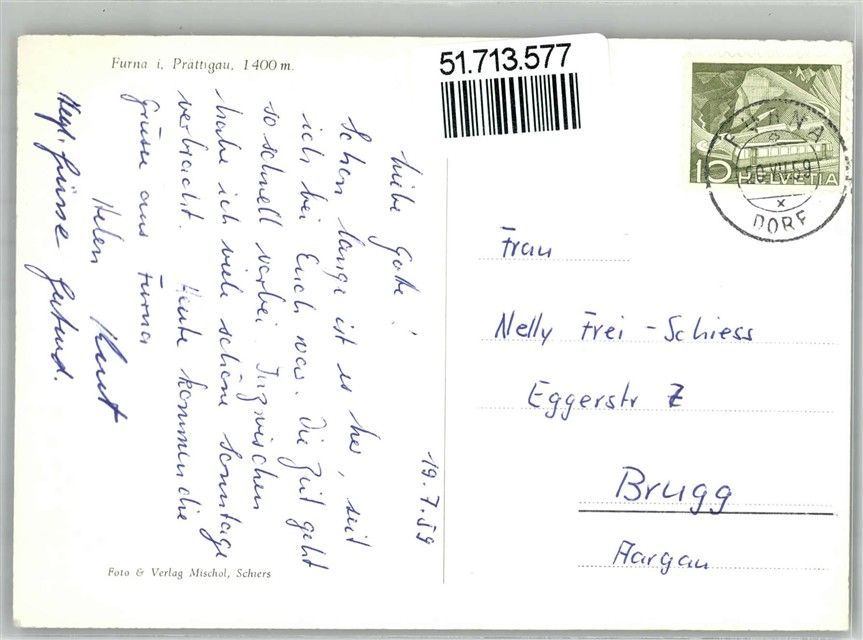 Furna i. Prättigau, 1400 m.
51.713.577
FURNA
20.VII.59
DORF
10 HELVETIA
19.7.59
Liebe Gotte!
Schon lange ist es her, seit
ich bei Euch war. Die Zeit geht
so schnell vorbei. Inzwischen
habe ich viele schöne Sonntage
verbracht. Heute kommen die
Grüsse aus Furna
Helen Kurt
Hezl. Grüsse Gertrud.
Frau
Nelly Frei-Schiess
Eggerstr 7
Brugg
Aargau
Foto & Verlag Mischol, Schiers